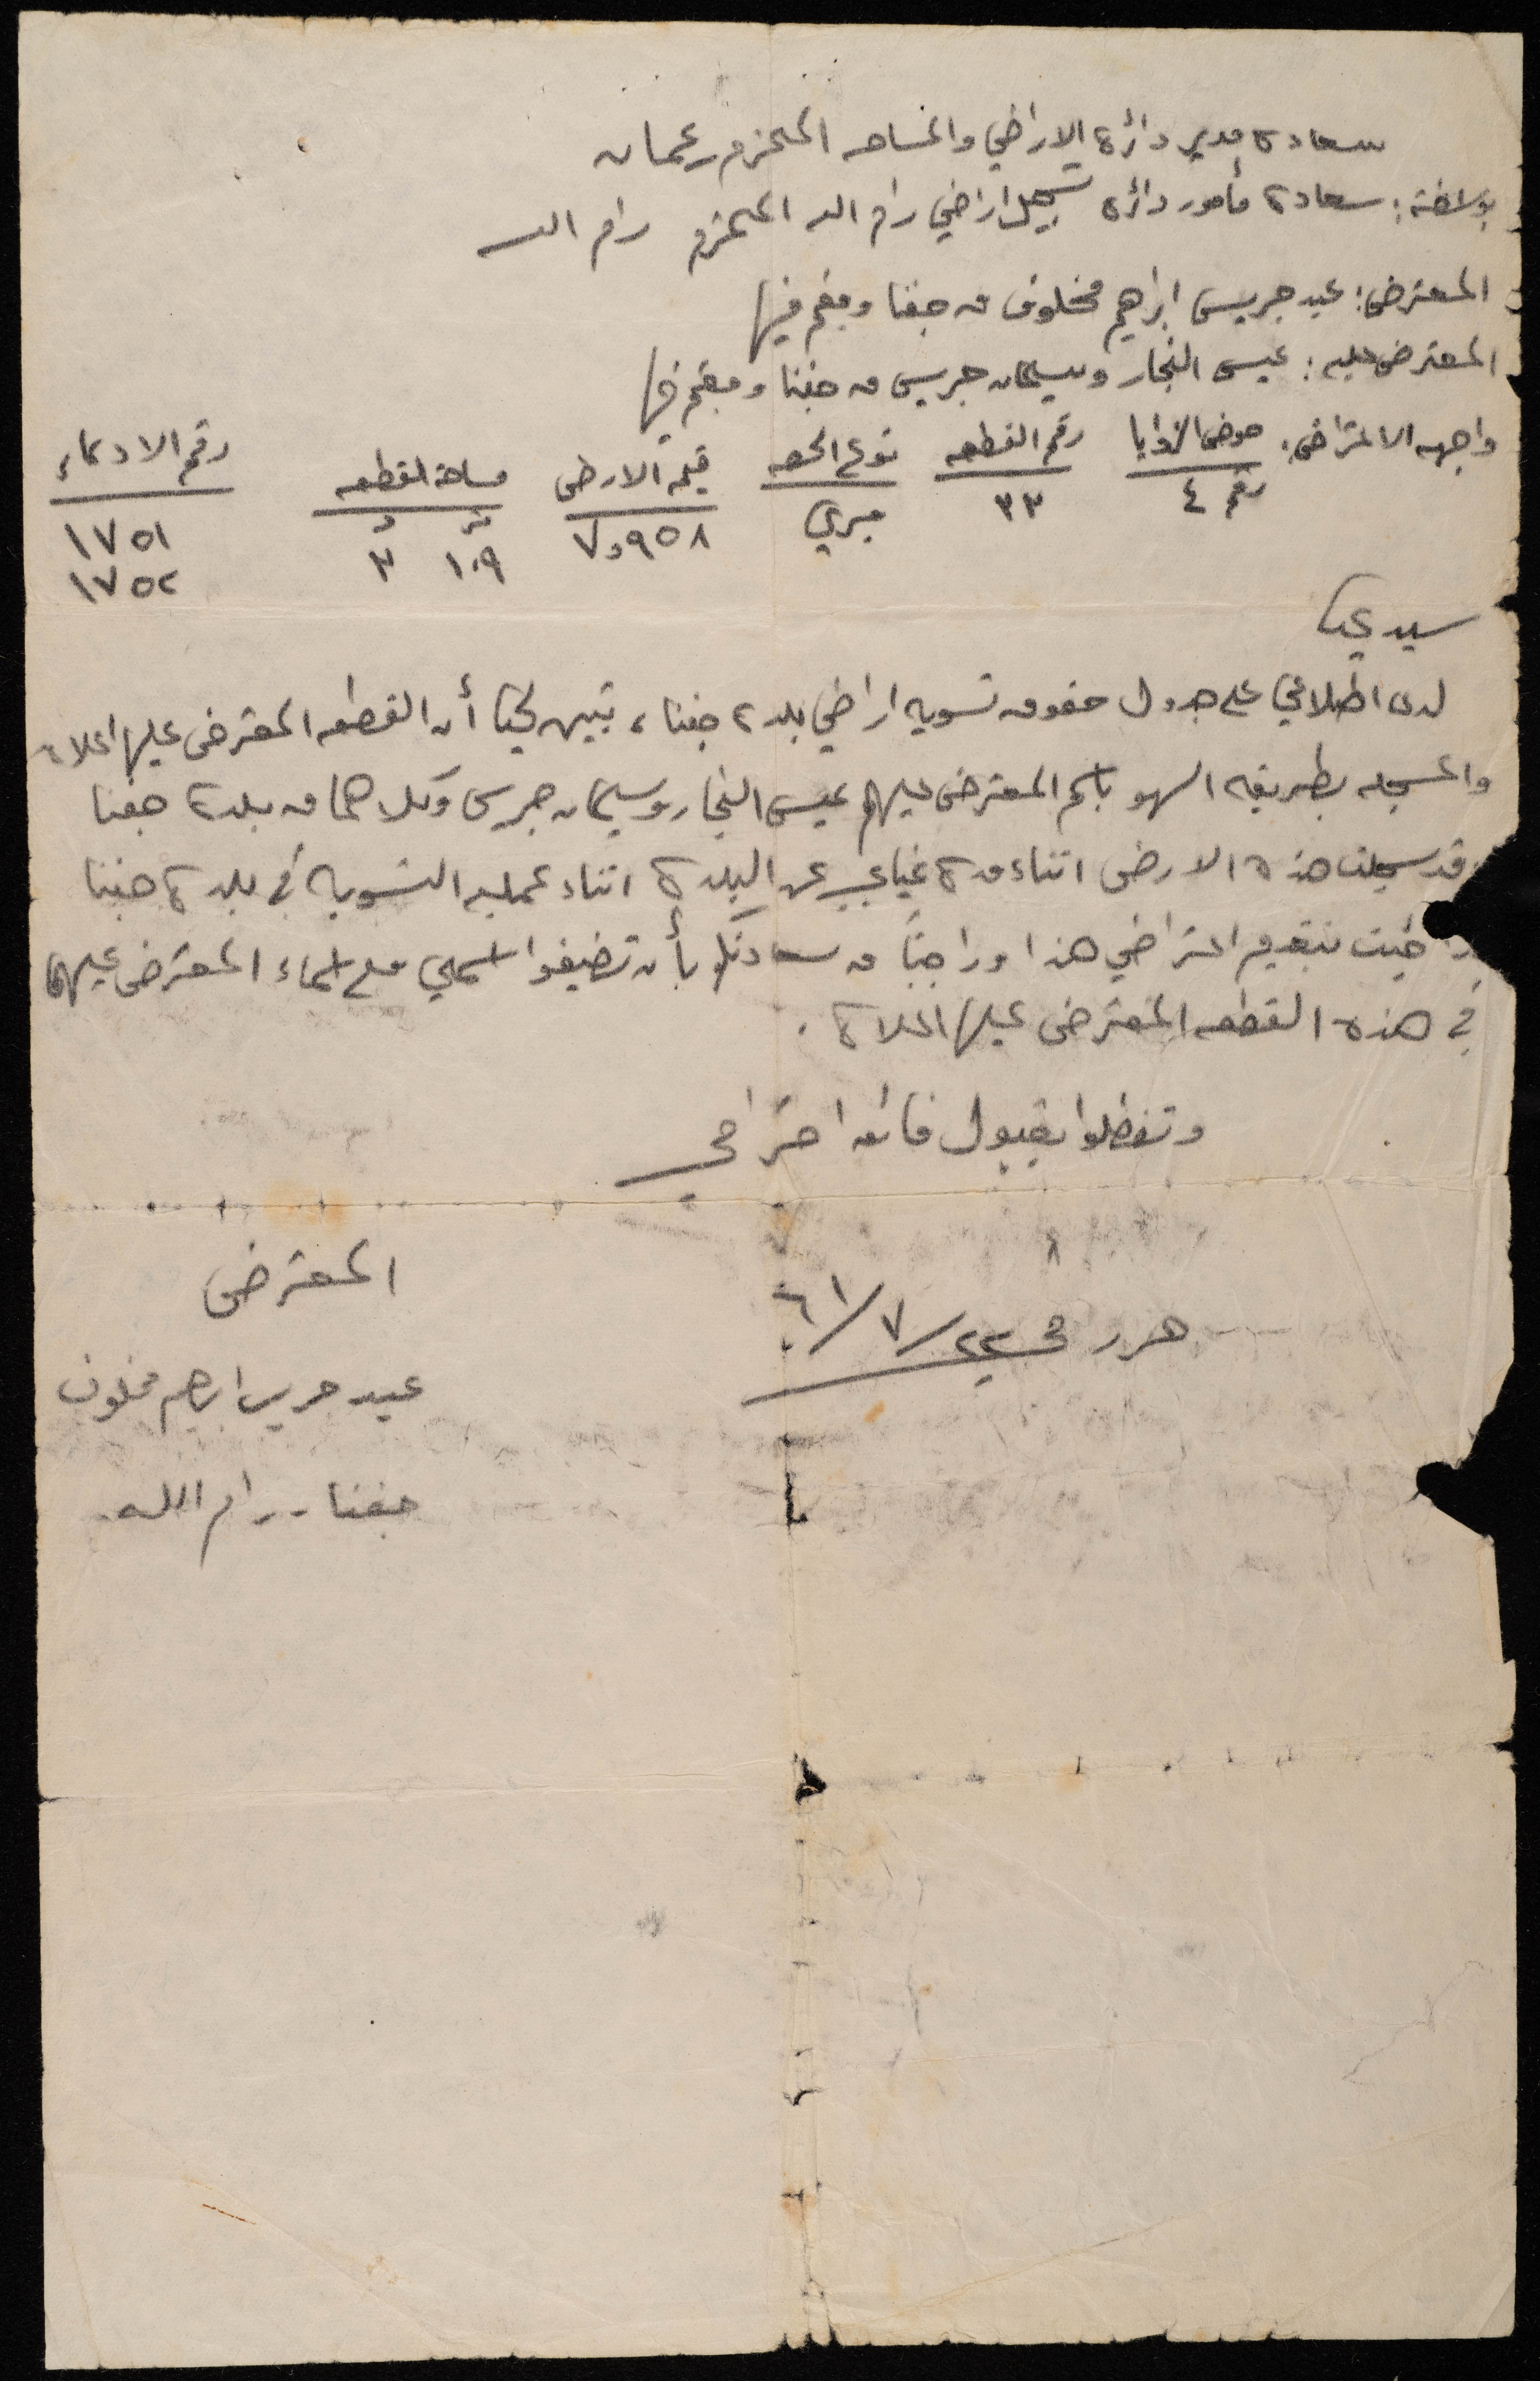 سعادة مدير دائرة الاراضي والمساحه المحترم عمان
بواسطة: سعادة مأمور دائرة تسجيل اراضي رام الله المحترم رام الله
المعترض: عيد جريس ابراهيم مخلوف من جفنا ومقيم فيها
المعترض عليه: عيسى النجار وسليمان جريس من جفنا ومقيم فيها
واجهه الاعتراض: حوض الزوايا رقم ٤ رقم القطعه ٣٣ نوع الحصه ميري قيمة الارض ٩٥٨و٧ مساحة القطعه ١٠٩ ٣ رقم الادعاء ١٧٥١
١٧٥٢
سيدي
لدى اطلاعي على جدول حقوق تسويه اراضي بلدة جفنا، تبين أن القطعه المعترض عليها اعلاه
والمسجله بطريقه السهو باسم المعترض عليهم عيسى النجار وسليمان جريس وكلاهما من بلدة جفنا
قد سجلت هذه الارض اثناء مدة غيابي عن البلدة اثناء عمليه التسويه في بلدة جفنا
بتقديم اعتراضي هذا وراجياً من سعادتكم بأن تضيفوا اسمي مع اسماء المعترض عليهما
في هذه القطعه المعترض عليها اعلاه.
وتفضلوا بقبول فائق احترامي
حرر في ٢٢/٧/٦١
المعترض
عيد جريس ابراهيم مخلوف
جفنا - رام الله.